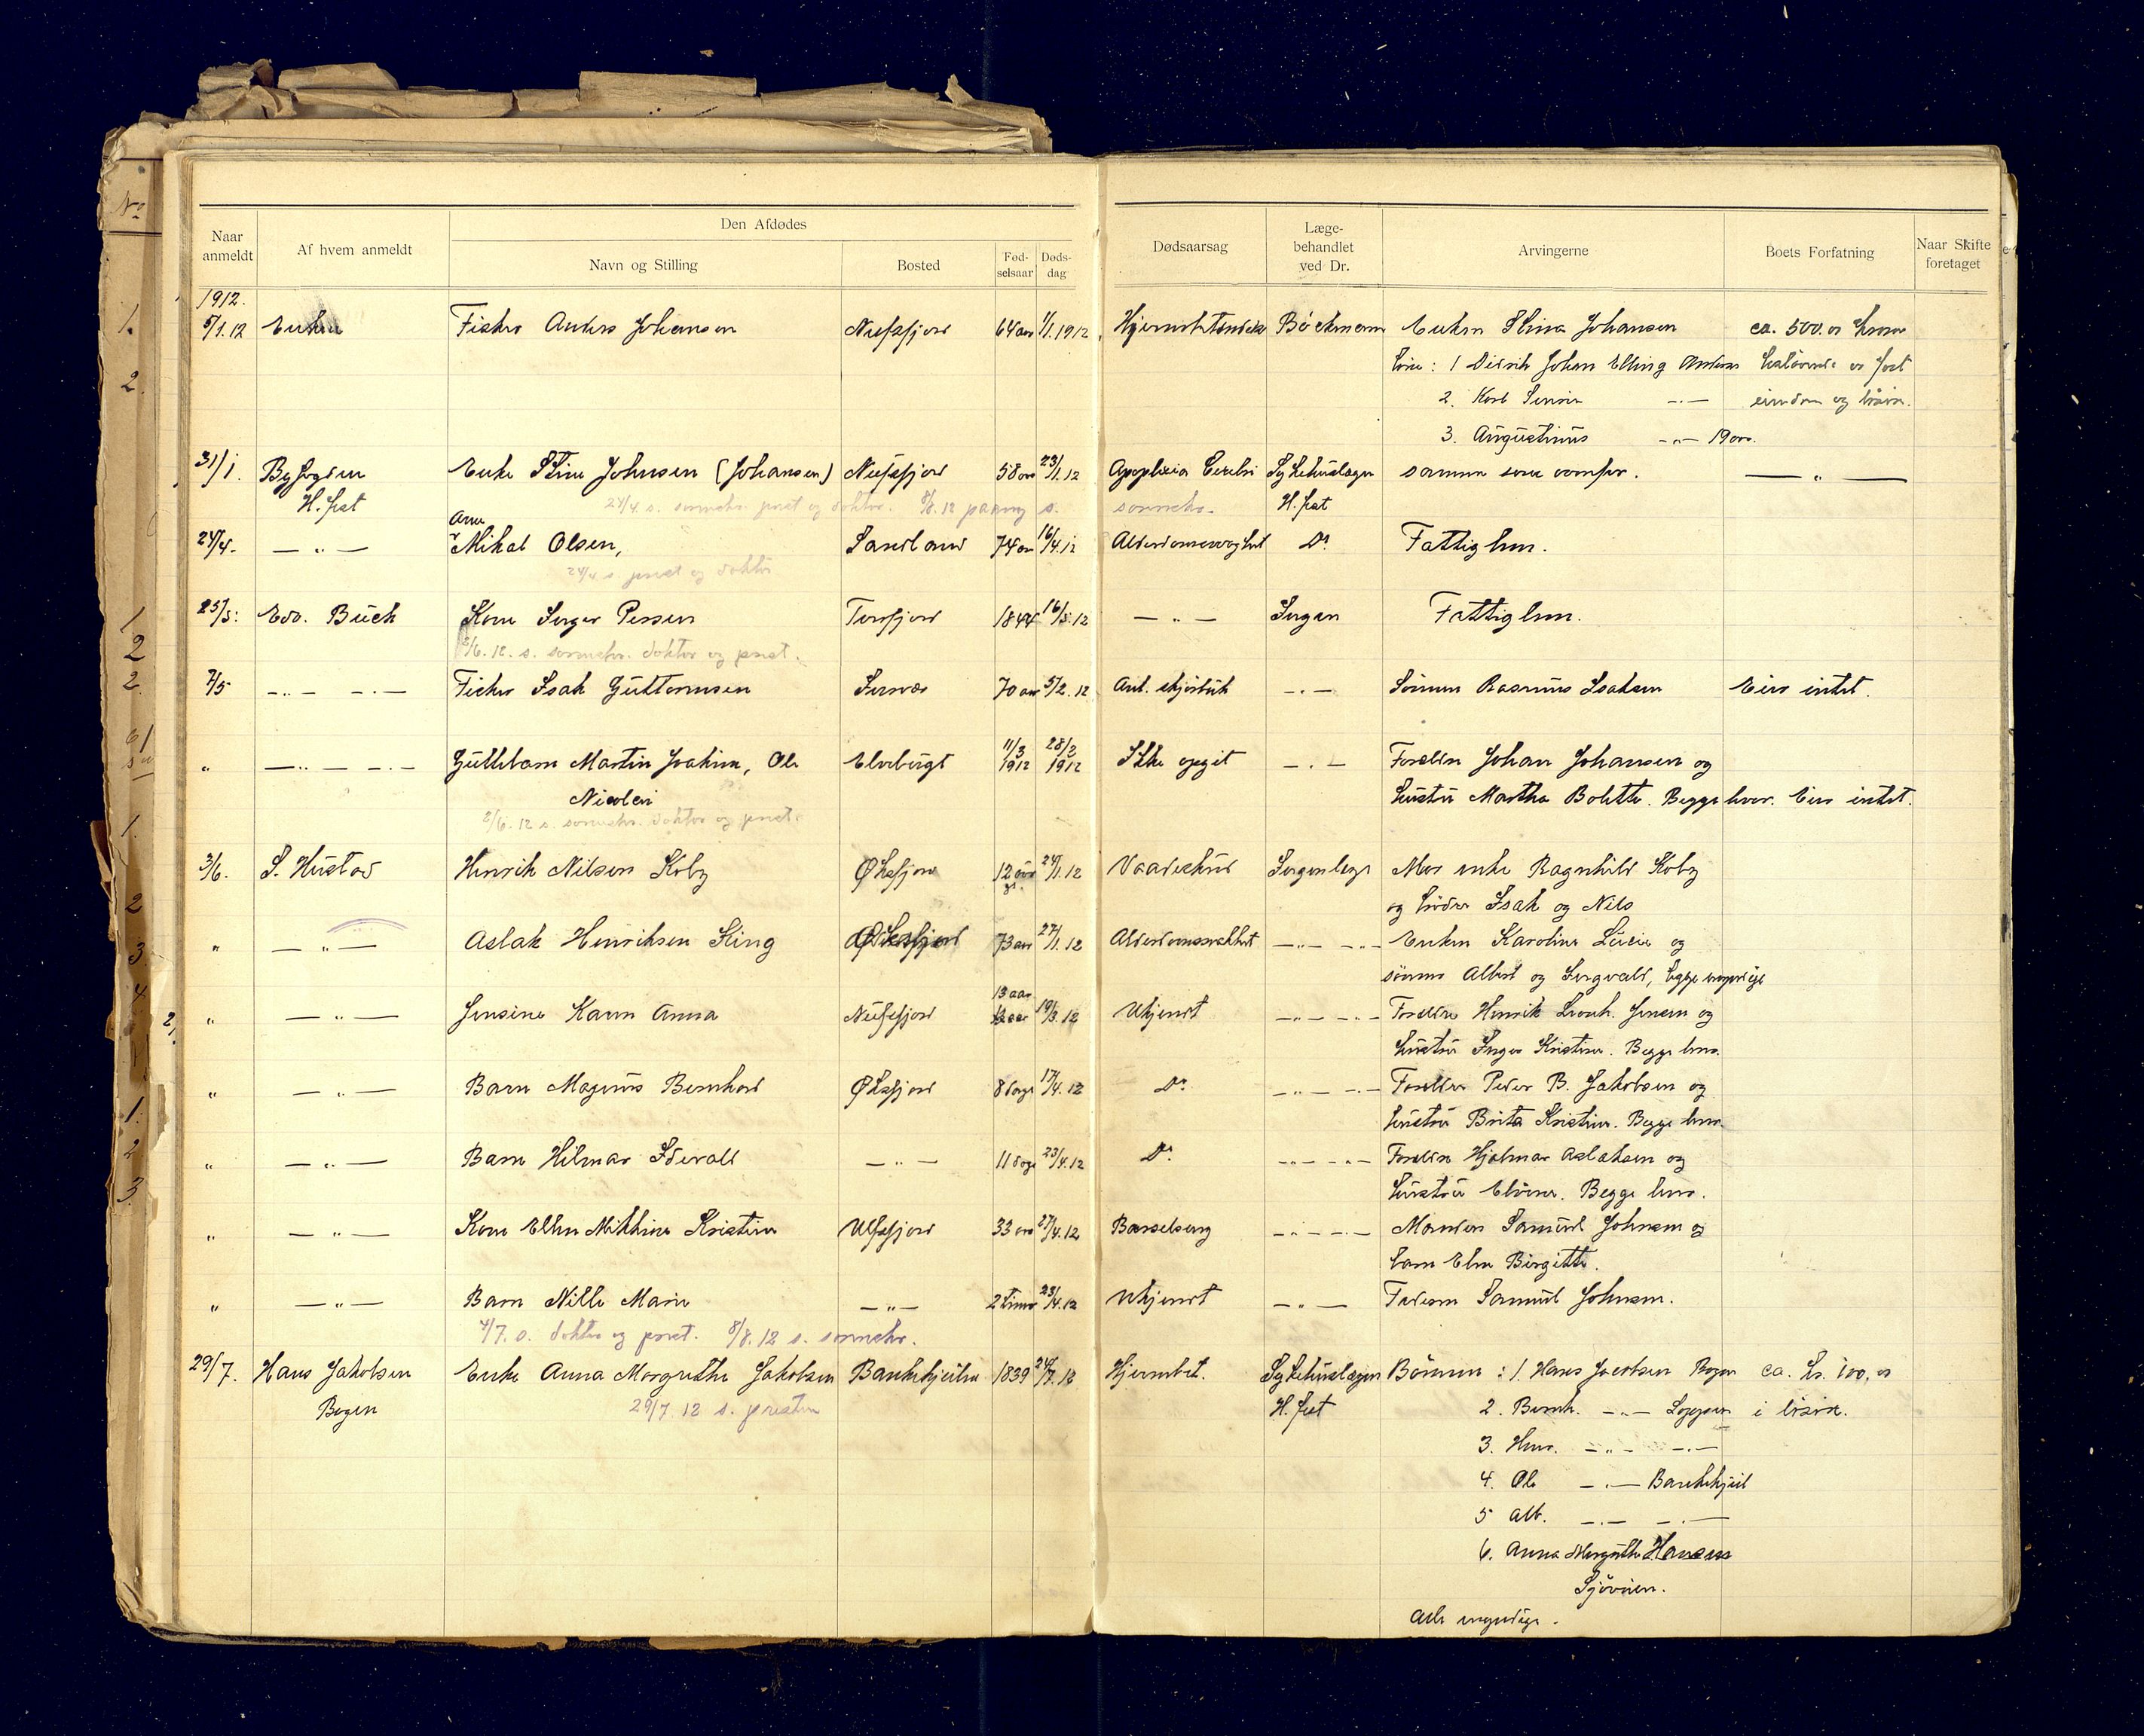 Naar anmeldt
Af hvem anmeldt
Den Afdødes
Navn og Stilling
Bosted
Fød-selsaar
Døds-dag
Dødsaarsag
Læge-behandlet ved Dr.
Arvingerne
Boets Forfatning
Naar Skifte foretaget
1912.
5/1.12 Enken Fisker Anders Johansen Nufsfjord 64 aar 1/1.1912 Böckmann Enken Stina Johansen ca. 500.00 kroner
1 Didrik Johan Elling Anders
2. Karl -"-
3. Augustinus -"- 19 aar.
31/1. Byfogden Enke Stine Johnsen (Johansen) Nufsfjord 58 aar 23/1.12 Apoplexia Cerebri Sykehuslægen samme som ovenfor. -"-
H.fest 24/4. s. sorenskr. prest og doktor. H.fest
24/4. -"- Mikal Olsen, Sandland 74 aar 16/4.12 Do Fattiglem.
24/4 s. prest og doktor
25/5. Edv. Buck Kone Inger Persen Torsfjord 1844 16/3.12 -"- Jørgen Fattiglem.
2/6.12. s. sorenskr. doktor og prest.
7/5 -"- -"- Fisker Isak Guttormsen 70 aar 5/2.12 -"- Sønnen Rasmus Isaksen Eier intet.
" -"- -"- Guttebarn Martin Joakim, Ole 11/3 1912 28/3 1912 Ikke opgit -"- Foreldre Johan Johansen og
Nicolai hustru Martha Bolette. Begge lever. Eier intet.
2/6.12 s. sorenskr. doktor og prest.
3/6. S. Hustad Henrik Nilsen Koby Øksfjord 12 aar 24/1.12 Vaadeskud Mor enke Ragnhild Koby
og brødre Isak og Nils
" -"- Aslak Henriksen King Øksfjord 73 aar 27/1.12 Alderdomssvakhet -"- -"- Enken Karoline Lucie og
sønner Albert og Ingvald, begge myndige
" -"- Jensine Karen Anna Nufsfjord 13 aar 19/3.12 Ukjendt -"- -"- Foreldre Henrik Leonh. Jensen og
hustru Inger Kristine. Begge lever.
" -"- Barn Magnus Bernhard Øksfjord 8 dage 17/4.12 Do -"- -"- Foreldre Peder B. Jakobsen og
hustru Brita Kristine. Begge lever.
" -"- Barn Hilmar Edevald -"- 11 dage 23/4.12 Do -"- -"- Foreldre Hjalmar Aslaksen og
hustru Elvine. Begge lever.
" -"- Kone Ellen Mikkine Kristine Ulfsfjord 33 aar 27/4.12 Barselseng -"- -"- Manden Samuel Johnsen og
barn Elen Birgitte.
" -"- Barn Nille Marie -"- 2 timer 23/4.12 Ukjendt -"- Faderen Samuel Johnsen.
4/7. s. doktor og prest. 8/8.12 s. sorenskr.
29/7. Hans Jakobsen Enke Anna Margrethe Jakobsen 1839 24/7.12 Sykehuslægen Børnen: 1. Hans Jacobsen Bogen ca. kr. 100,00
Bogen 29/7 12 s. presten H.fest 2. Bernh. -"- Loppen i løsøre.
3. -"- -"-
4. Ole -"- Bankekjeil
5 Alb. -"- -"-
6. Anna Margrethe Hansen
Alle myndige.